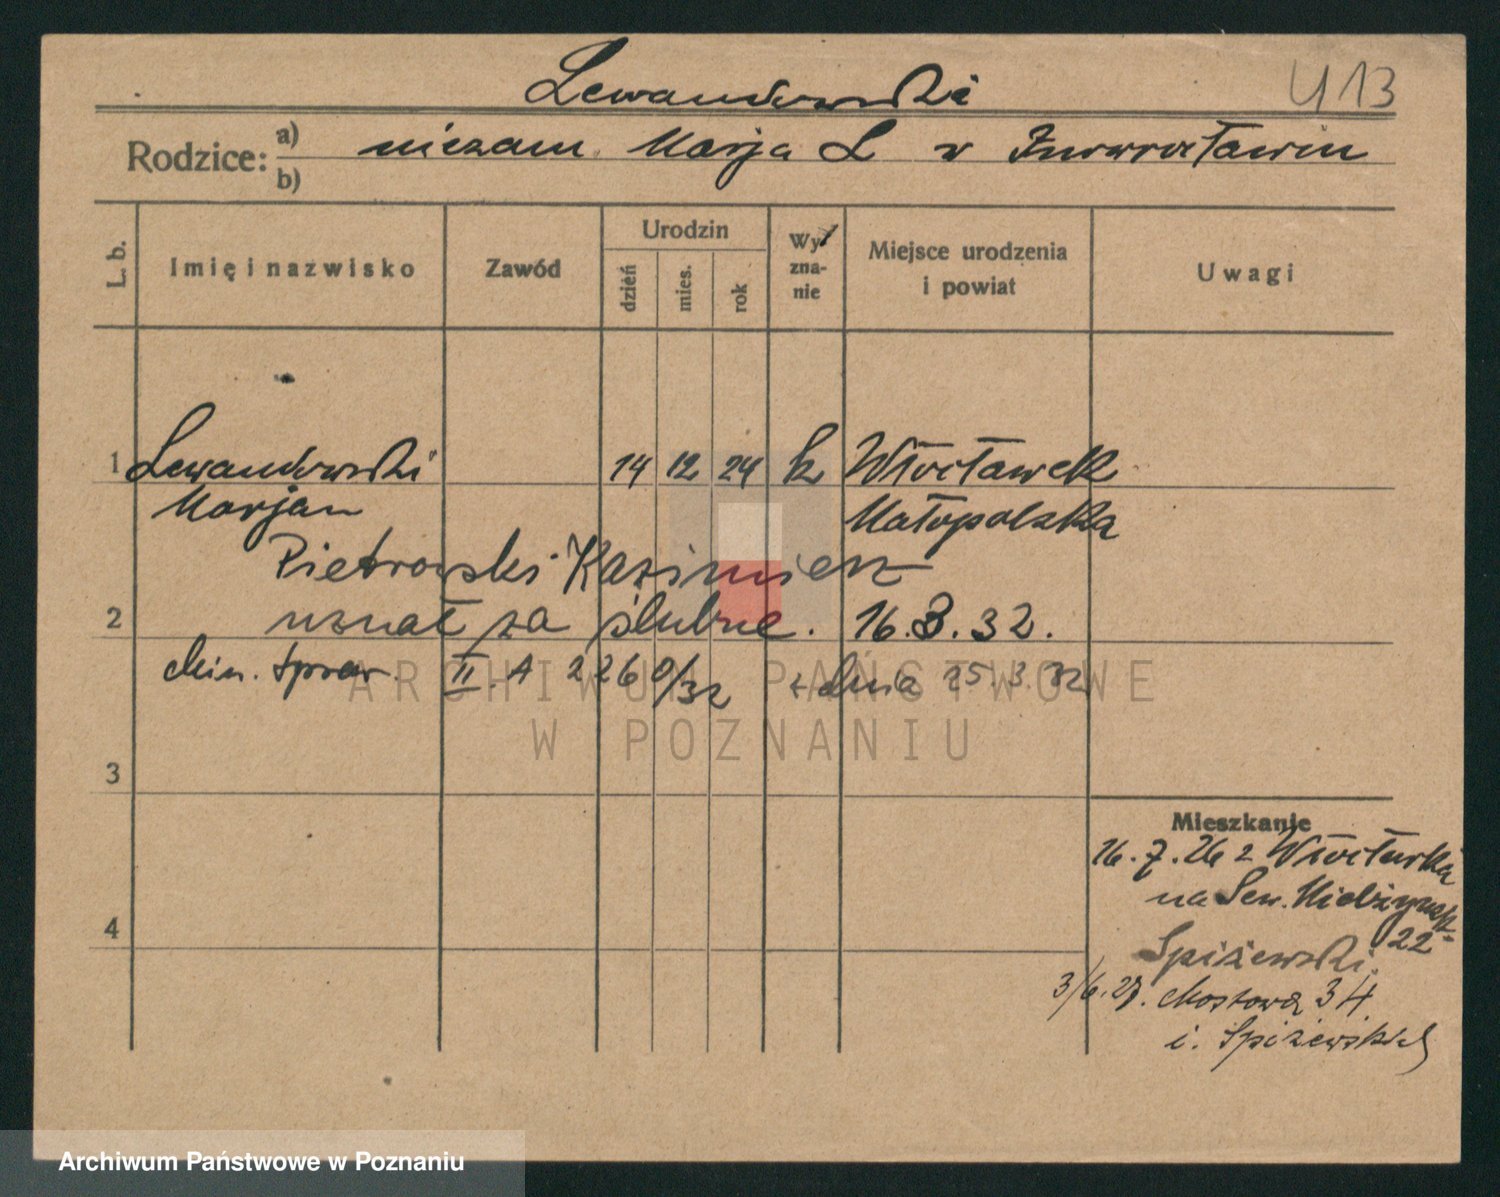 Lewandowski
U13
Rodzice: a) niezam. Marja L w Inowrocławiu
b)
L. b.
Imię i nazwisko
Zawód
Urodzin
dzień
mies.
rok
Wyzna-
nie
Miejsce urodzenia
i powiat
Uwagi
1 Lewandowski 14 12 24 k Włocławek
Marjan Małopolska
Pietrowski Kazimierz
2 uznał za ślubne. 16.3.32.
Min. Spraw. II. A 2260/32 z dnia 25.3.32
ARCHIWUM PAŃSTWOWE
W POZNANIU
3
Mieszkanie
16.7.26 z Włocławka
na Sew. Mielżyńsk
22
4
Spiżewski
3/6.27. Mostowa 34
i. Spiżewskich
Archiwum Państwowe w Poznaniu